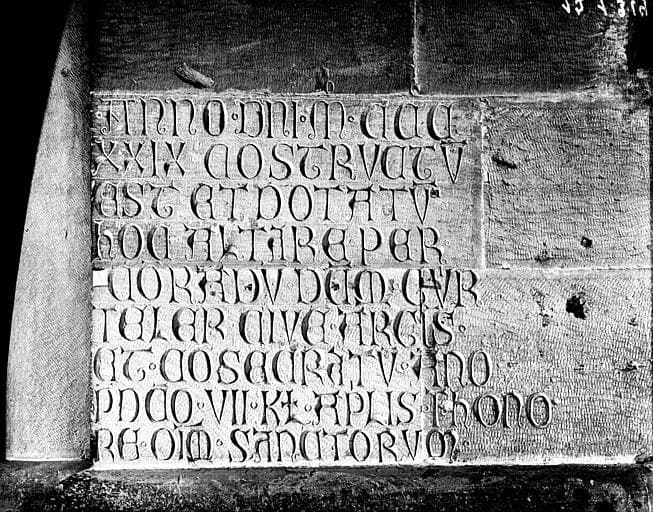 ANNO·DNI·M·CCC
XXIX COSTRVCTV
EST ET DOTATV
HOC ALTARE·PER
CORADV DCM·GVR
TELER CIVE·ARGIS·
ET·COSECRATV·ANO
PDCO·VII·KL·APLIS·I·HONO
RE·OIM·SANCTORVM·